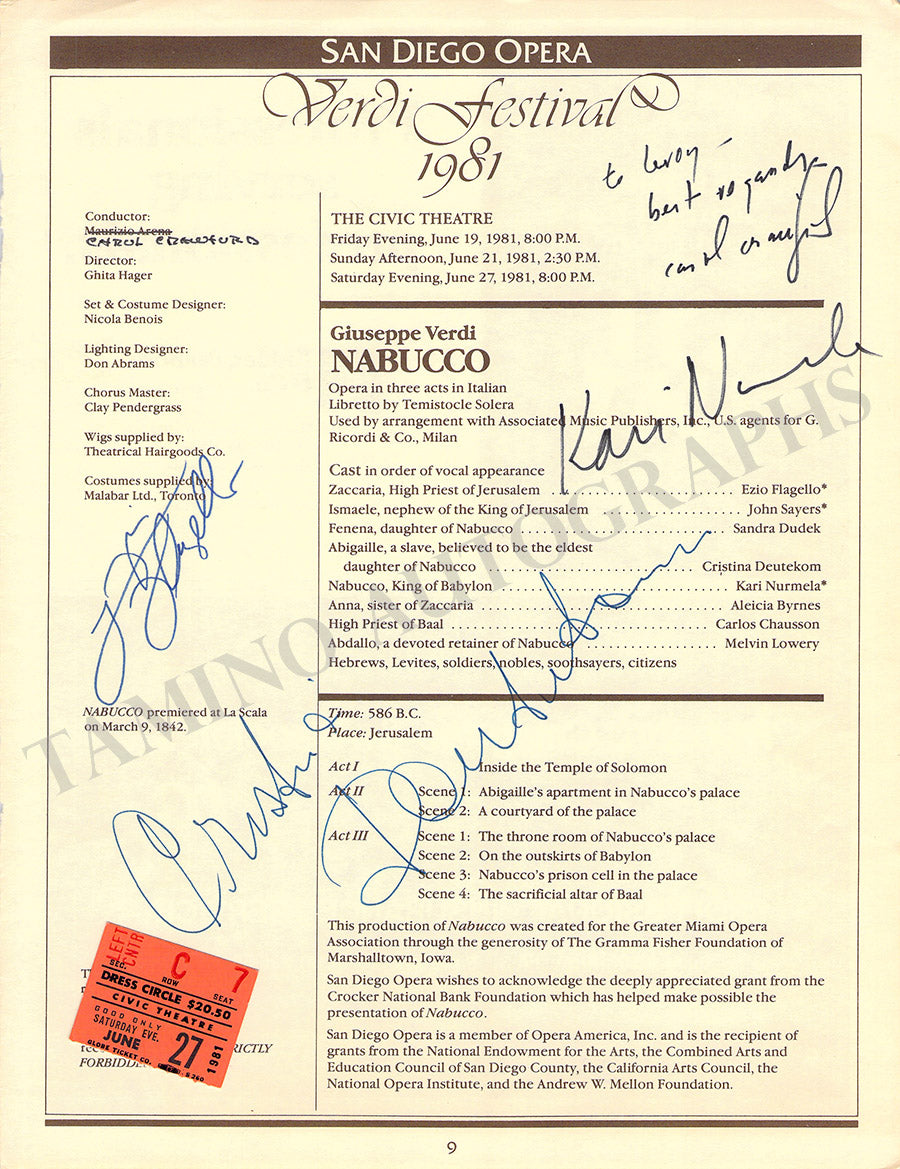 SAN DIEGO OPERA
Verdi Festival
1981
to Leroy –
best regards
carol crawford
Conductor:
Maurizio Arena
CAROL CRAWFORD
Director:
Ghita Hager
Set & Costume Designer:
Nicola Benois
Lighting Designer:
Don Abrams
Chorus Master:
Clay Pendergrass
Wigs supplied by:
Theatrical Hairgoods Co.
Costumes supplied by:
Malabar Ltd., Toronto
Ezio Flagello
NABUCCO premiered at La Scala
on March 9, 1842.
THE CIVIC THEATRE
Friday Evening, June 19, 1981, 8:00 P.M.
Sunday Afternoon, June 21, 1981, 2:30 P.M.
Saturday Evening, June 27, 1981, 8:00 P.M.
Giuseppe Verdi
NABUCCO
Opera in three acts in Italian
Libretto by Temistocle Solera
Used by arrangement with Associated Music Publishers, Inc., U.S. agents for G.
Ricordi & Co., Milan
Kari Nurmela
Cast in order of vocal appearance
Zaccaria, High Priest of Jerusalem .......... Ezio Flagello*
Ismaele, nephew of the King of Jerusalem .......... John Sayers*
Fenena, daughter of Nabucco .......... Sandra Dudek
Abigaille, a slave, believed to be the eldest
daughter of Nabucco .......... Cristina Deutekom
Nabucco, King of Babylon .......... Kari Nurmela*
Anna, sister of Zaccaria .......... Aleicia Byrnes
High Priest of Baal .......... Carlos Chausson
Abdallo, a devoted retainer of Nabucco .......... Melvin Lowery
Hebrews, Levites, soldiers, nobles, soothsayers, citizens
Cristina Deutekom
Time: 586 B.C.
Place: Jerusalem
Act I Inside the Temple of Solomon
Act II Scene 1: Abigaille's apartment in Nabucco's palace
Scene 2: A courtyard of the palace
Act III Scene 1: The throne room of Nabucco's palace
Scene 2: On the outskirts of Babylon
Scene 3: Nabucco's prison cell in the palace
Scene 4: The sacrificial altar of Baal
This production of Nabucco was created for the Greater Miami Opera
Association through the generosity of The Gramma Fisher Foundation of
Marshalltown, Iowa.
San Diego Opera wishes to acknowledge the deeply appreciated grant from the
Crocker National Bank Foundation which has helped make possible the
presentation of Nabucco.
San Diego Opera is a member of Opera America, Inc. and is the recipient of
grants from the National Endowment for the Arts, the Combined Arts and
Education Council of San Diego County, the California Arts Council, the
National Opera Institute, and the Andrew W. Mellon Foundation.
LEFT
CNTR C 7
SEC. ROW SEAT
DRESS CIRCLE $20.50
CIVIC THEATRE
GOOD ONLY
SATURDAY EVE.
JUNE 27 1981
GLOBE TICKET CO.
FORBIDDE
TAMINO AUTOGRAPHS
9